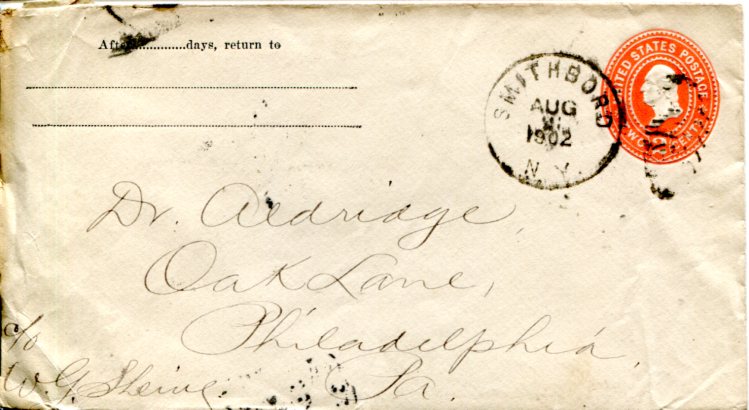 After..............days, return to
UNITED STATES POSTAGE
TWO CENTS
SMITHBORO
AUG
1902
N.Y.
Dr. Aldridge,
Oak Lane,
Philadelphia,
Pa.
c/o
W. G.